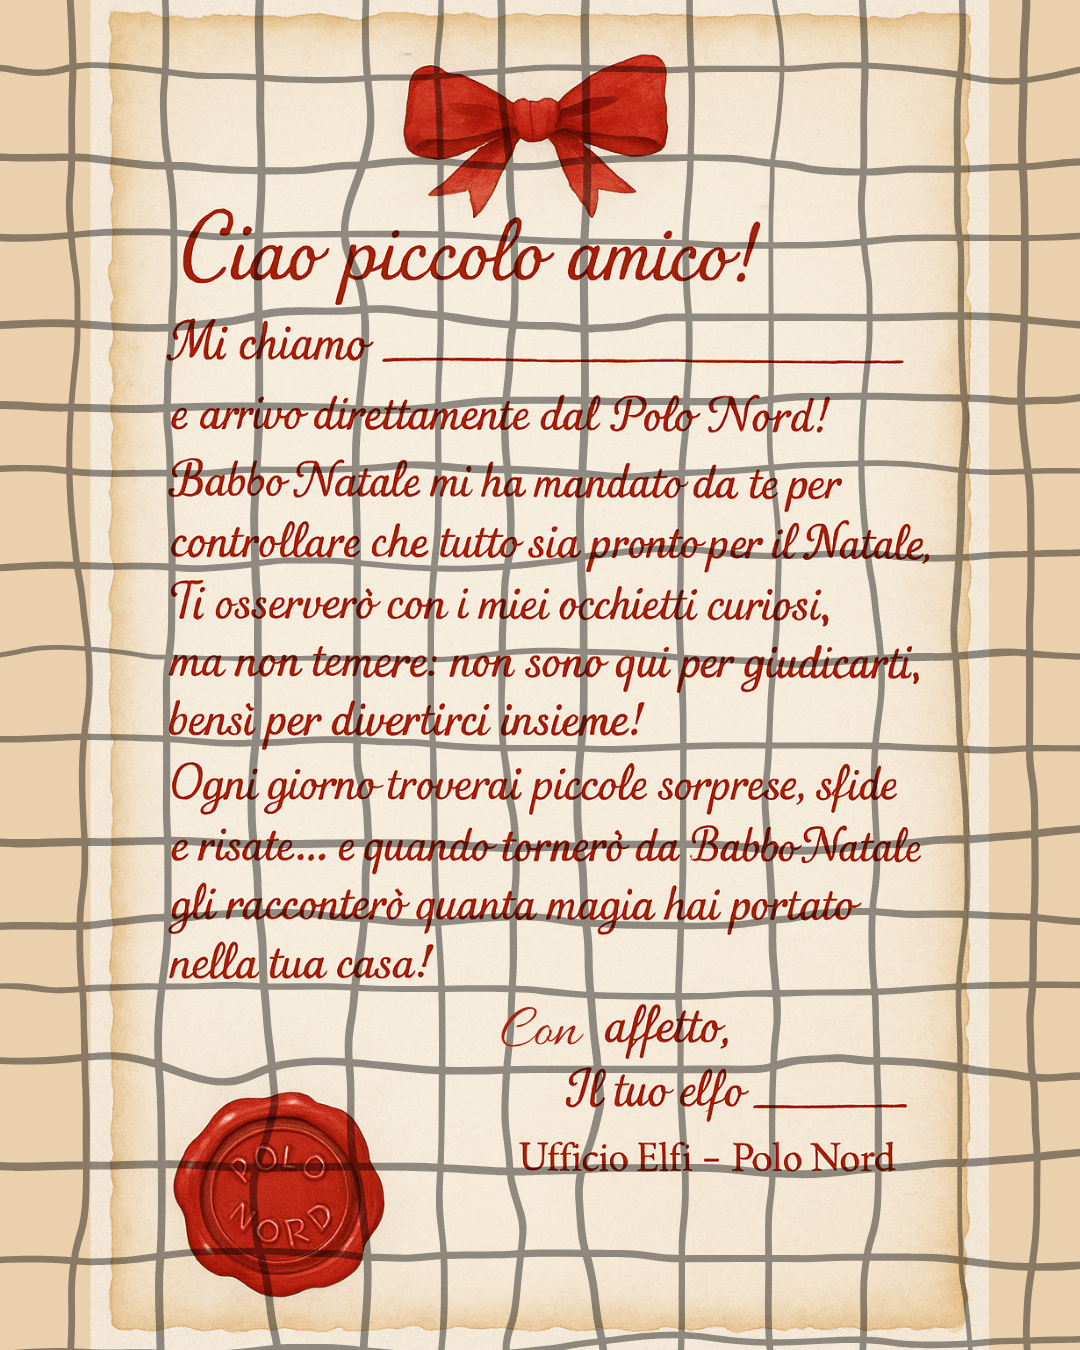 Ciao piccolo amico!
Mi chiamo ____________________
e arrivo direttamente dal Polo Nord!
Babbo Natale mi ha mandato da te per
controllare che tutto sia pronto per il Natale,
Ti osserverò con i miei occhietti curiosi,
ma non temere: non sono qui per giudicarti,
bensì per divertirci insieme!
Ogni giorno troverai piccole sorprese, sfide
e risate... e quando tornerò da Babbo Natale
gli racconterò quanta magia hai portato
nella tua casa!
Con affetto,
Il tuo elfo ________
Ufficio Elfi – Polo Nord
POLO
NORD